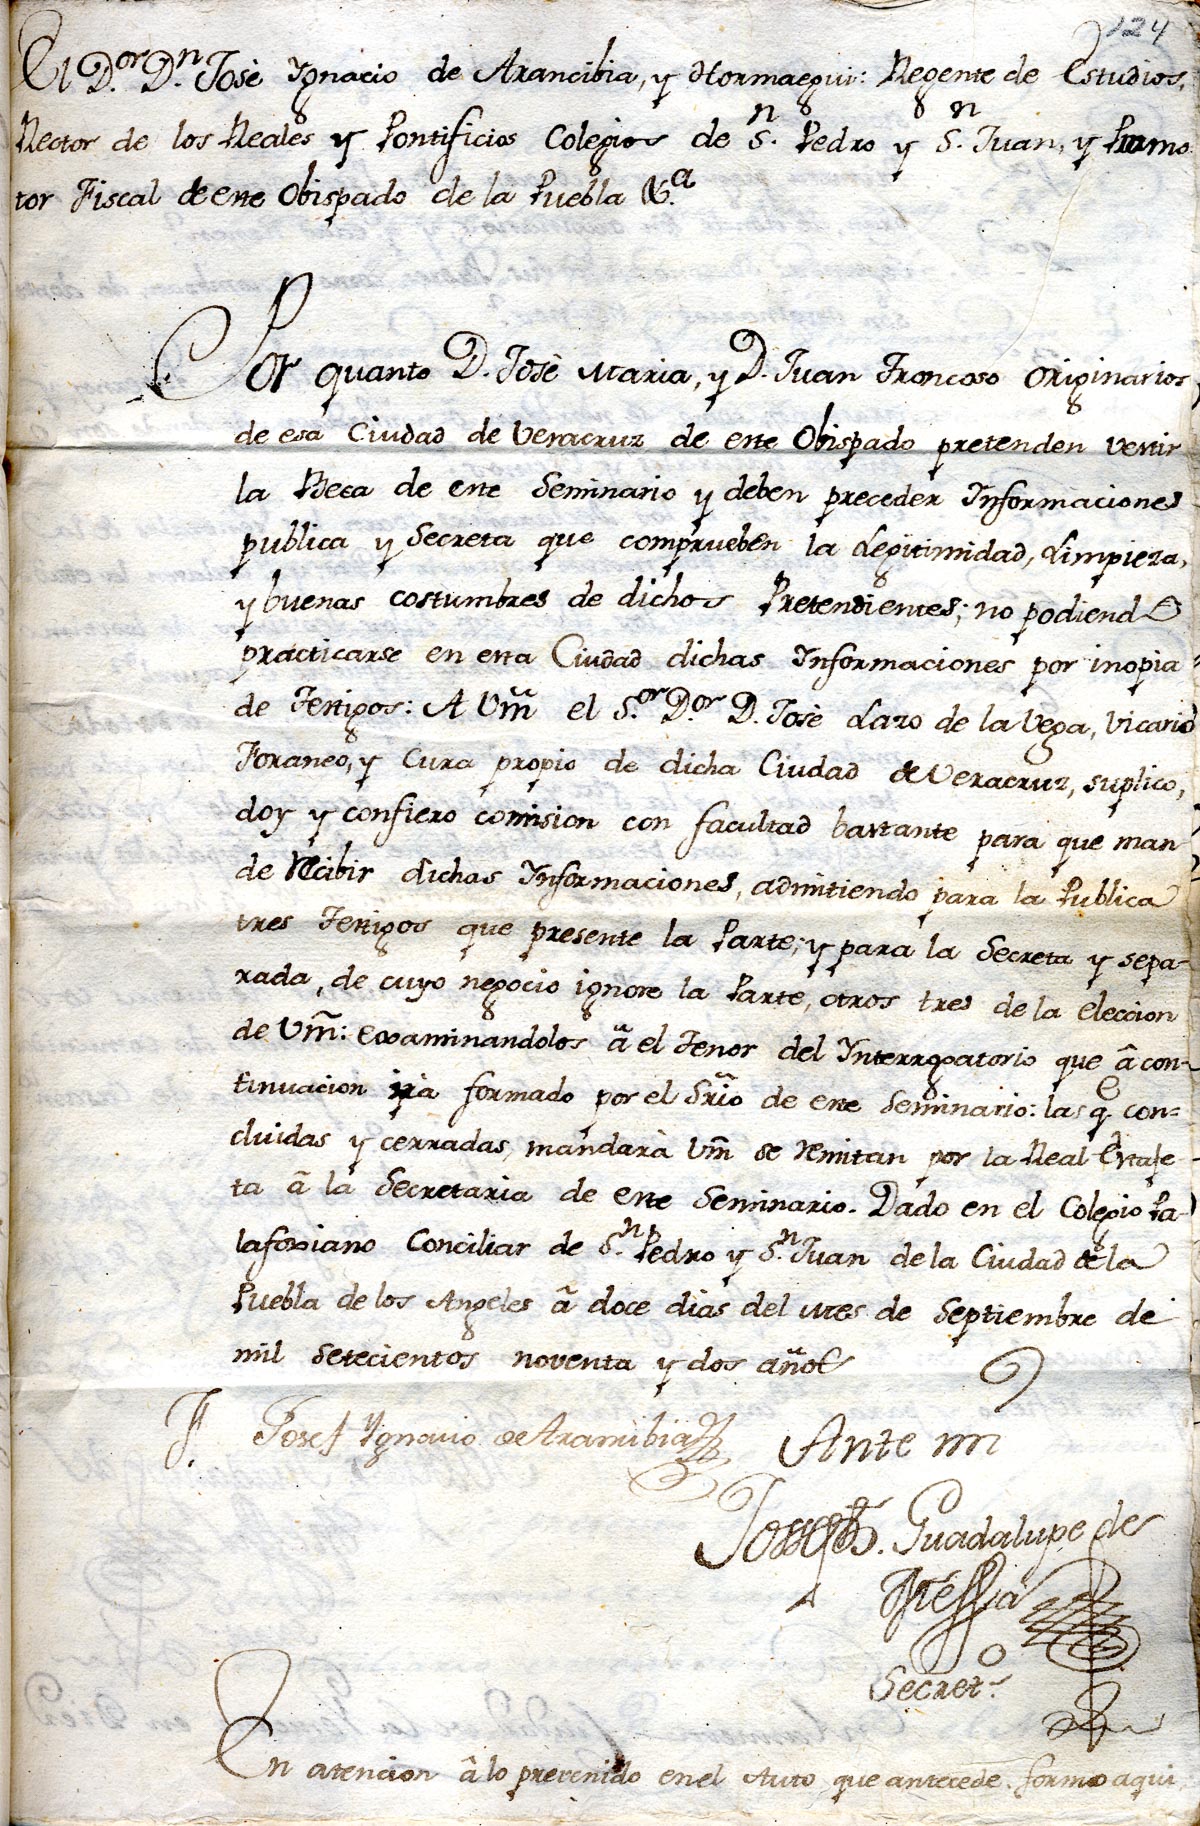 124
El D.or D.n Josè Ygnacio de Arancibia, y Hormaegui: Regente de Estudios,
Rector de los Reales y Pontificios Colegios de S.n Pedro y S.n Juan, y Promo
tor Fiscal de este Obispado de la Puebla &.a
Por quanto D. Josè Maria, y D. Juan Troncoso originarios
de esa Ciudad de Veracruz de este Obispado pretenden vestir
la Beca de este Seminario y deben preceder Informaciones
publica y Secreta que comprueben la Legitimidad, Limpieza,
y buenas costumbres de dichos Pretendientes; no podiendo
practicarse en esta Ciudad dichas Informaciones por inopia
de Testigos: A Vm̃ el S.or D.or D. Josè Lazo de la Vega, Vicario
Foraneo, y Cura propio de dicha Ciudad de Veracruz, suplico,
doy y confiero comision con facultad bastante para que man
de recibir dichas Informaciones, admitiendo para la Publica
tres Testigos que presente la Parte; y para la Secreta y sepa-
rada, de cuyo negocio ignore la Parte, otros tres de la eleccion
de Vm̃: examinandolos â el Tenor del Interrogatorio que â con-
tinuacion irà formado por el Srio de este Seminario: las q.e con=
cluidas y cerradas, mandarà Vm̃ se remitan por la Real Estafe
ta â la Secretaria de este Seminario. Dado en el Colegio Pa-
lafoxiano Conciliar de S.n Pedro y S.n Juan de la Ciudad de la
Puebla de los Angeles â doce dias del mes de Septiembre de
mil setecientos noventa y dos años
Josef Ygnacio de Arancibia
Ante mi
Joseph Guadalupe de
Secret.o
En atencion â lo prevenido en el Auto que antecede formo aqui